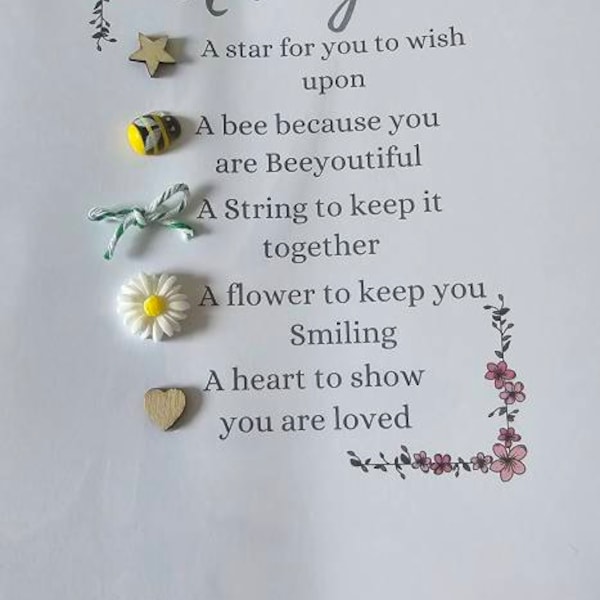 A star for you to wish
upon
A bee because you
are Beeyoutiful
A String to keep it
together
A flower to keep you
Smiling
A heart to show
you are loved